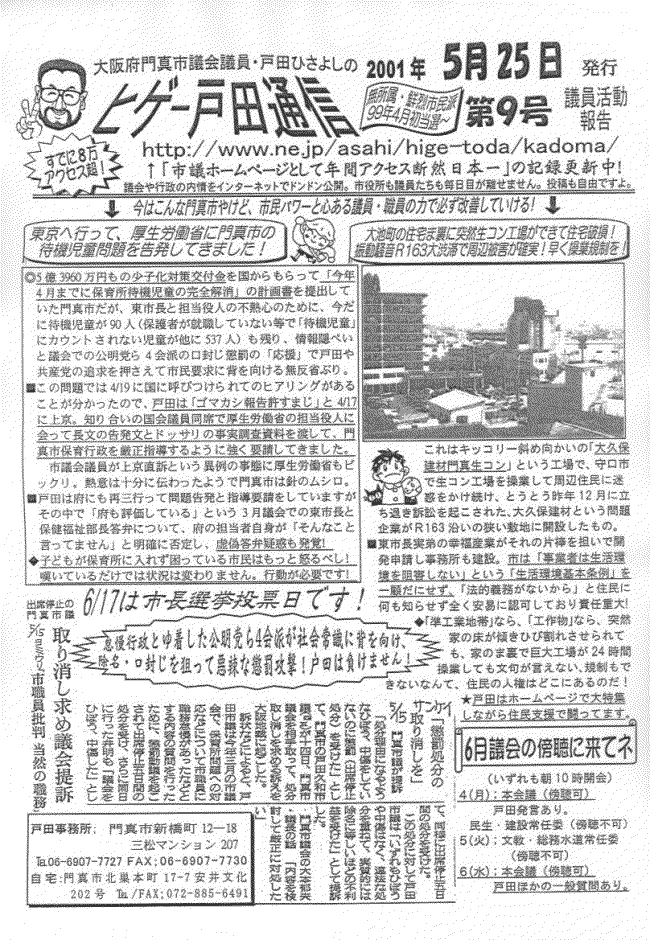 大阪府門真市議会議員・戸田ひさよしの
2001年 5月25日 発行
ヒゲー戸田通信
無所属・鮮烈市民派
99年4月初当選～
第9号
議員活動
報告
すでに8万
アクセス超!
http://www.ne.jp/asahi/hige-toda/kadoma/
↑「市議ホームページとして年間アクセス断然日本一」の記録更新中!
議会や行政の内情をインターネットでドンドン公開。市役所も議員たちも毎日目が離せません。投稿も自由ですよ。
↓ 今はこんな門真市やけど、市民パワーと心ある議員・職員の力で必ず改善していける! ↓
東京へ行って、厚生労働省に門真市の
待機児童問題を告発してきました!
◎5億3960万円もの少子化対策交付金を国からもらって「今年
4月までに保育所待機児童の完全解消」の計画書を提出してい
た門真市だが、東市長と担当役人の不熱心のために、今だ
に待機児童が90人(保護者が就職していない等で「待機児童」
にカウントされない児童が他に537人)も残り、情報隠ぺい
と議会での公明党ら4会派の口封じ懲罰の「応援」で戸田や
共産党の追求を押さえて市民要求に背を向ける無反省ぶり。
■この問題では4/19に国に呼びつけられてのヒアリングがある
ことが分かったので、戸田は「ゴマカシ報告許すまじ」と4/17
に上京。知り合いの国会議員同席で厚生労働省の担当役人に
会って長文の告発文とドッサリの事実調査資料を渡して、門
真市保育行政を厳正指導するように強く要請してきました。
市議会議員が上京直訴という異例の事態に厚生労働省もビ
ックリ。熱意は十分に伝わったようで門真市は針のムシロ。
■戸田は府にも再三行って問題告発と指導要請をしていますが
その中で「府も評価している」という3月議会での東市長と
保健福祉部長答弁について、府の担当者自身が「そんなこと
言ってません」と明確に否定し、虚偽答弁疑惑も発覚!
◆子どもが保育所に入れず困っている市民はもっと怒るべし!
嘆いているだけでは状況は変わりません。行動が必要です!
大池町の住宅ま裏に突然生コン工場ができて住宅破損!
振動騒音R163大渋滞で周辺被害が確実!早く操業規制を!
これはキッコリー斜め向かいの「大久保
建材門真生コン」という工場で、守口市
で生コン工場を操業して周辺住民に迷
惑をかけ続け、とうとう昨年12月に立
ち退き訴訟を起こされた、大久保建材という問題
企業がR163沿いの狭い敷地に開設したもの。
■東市長実弟の幸福産業がそれの片棒を担いで開
発申請し事務所も建設。市は「事業者は生活環
境を阻害しない」という「生活環境基本条例」を
一顧だにせず、「法的義務がないから」と住民に
何も知らせず全く安易に認可しており責任重大!
◆「準工業地帯」なら、「工作物」なら、突然
家の床が傾きひび割れさせられて
も、家のま裏で巨大工場が24時間
操業しても文句が言えない、規制もで
きないなんて、住民の人権はどこにあるのだ!
★戸田はホームページで大特集
しながら住民支援で闘ってます。
6/17は市長選挙投票日です!
怠慢行政とゆ着した公明党ら4会派が社会常識に背を向け、
除名・口封じを狙って悪辣な懲罰攻撃!戸田は負けません!
出席停止の
門真市議
取り消し求め議会提訴
市職員批判 当然の職務
サンケイ
5/15
「懲罰処分の
取り消しを」
門真市議が提訴
6月議会の傍聴に来てネ
(いずれも朝10時開会)
4(月):本会議(傍聴可)
戸田発言あり。
民生・建設常任委(傍聴不可)
5(火):文教・総務水道常任委
(傍聴不可)
6(水):本会議(傍聴可)
戸田ほかの一般質問あり。
戸田事務所: 門真市新橋町12―18
三松マンション207
℡06-6907-7727 FAX;06-6907-7730
自宅:門真市北巣本町17-7安井文化
202号 Tel/FAX;072-885-6491